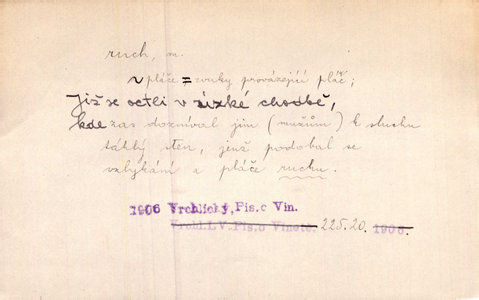 ruch, m.
~ pláče = zvuky provázející pláč;
Již se octli v úzké chodbě,
kde zas dozníval jim (mužům) k sluchu
táhlý sten, jenž podobal se
vzlykání a pláče ruchu.
1906 Vrchlický, Pís. o Vin.
Vrchl. I. V. Pís. o Vinetě. 225.20. 1906.